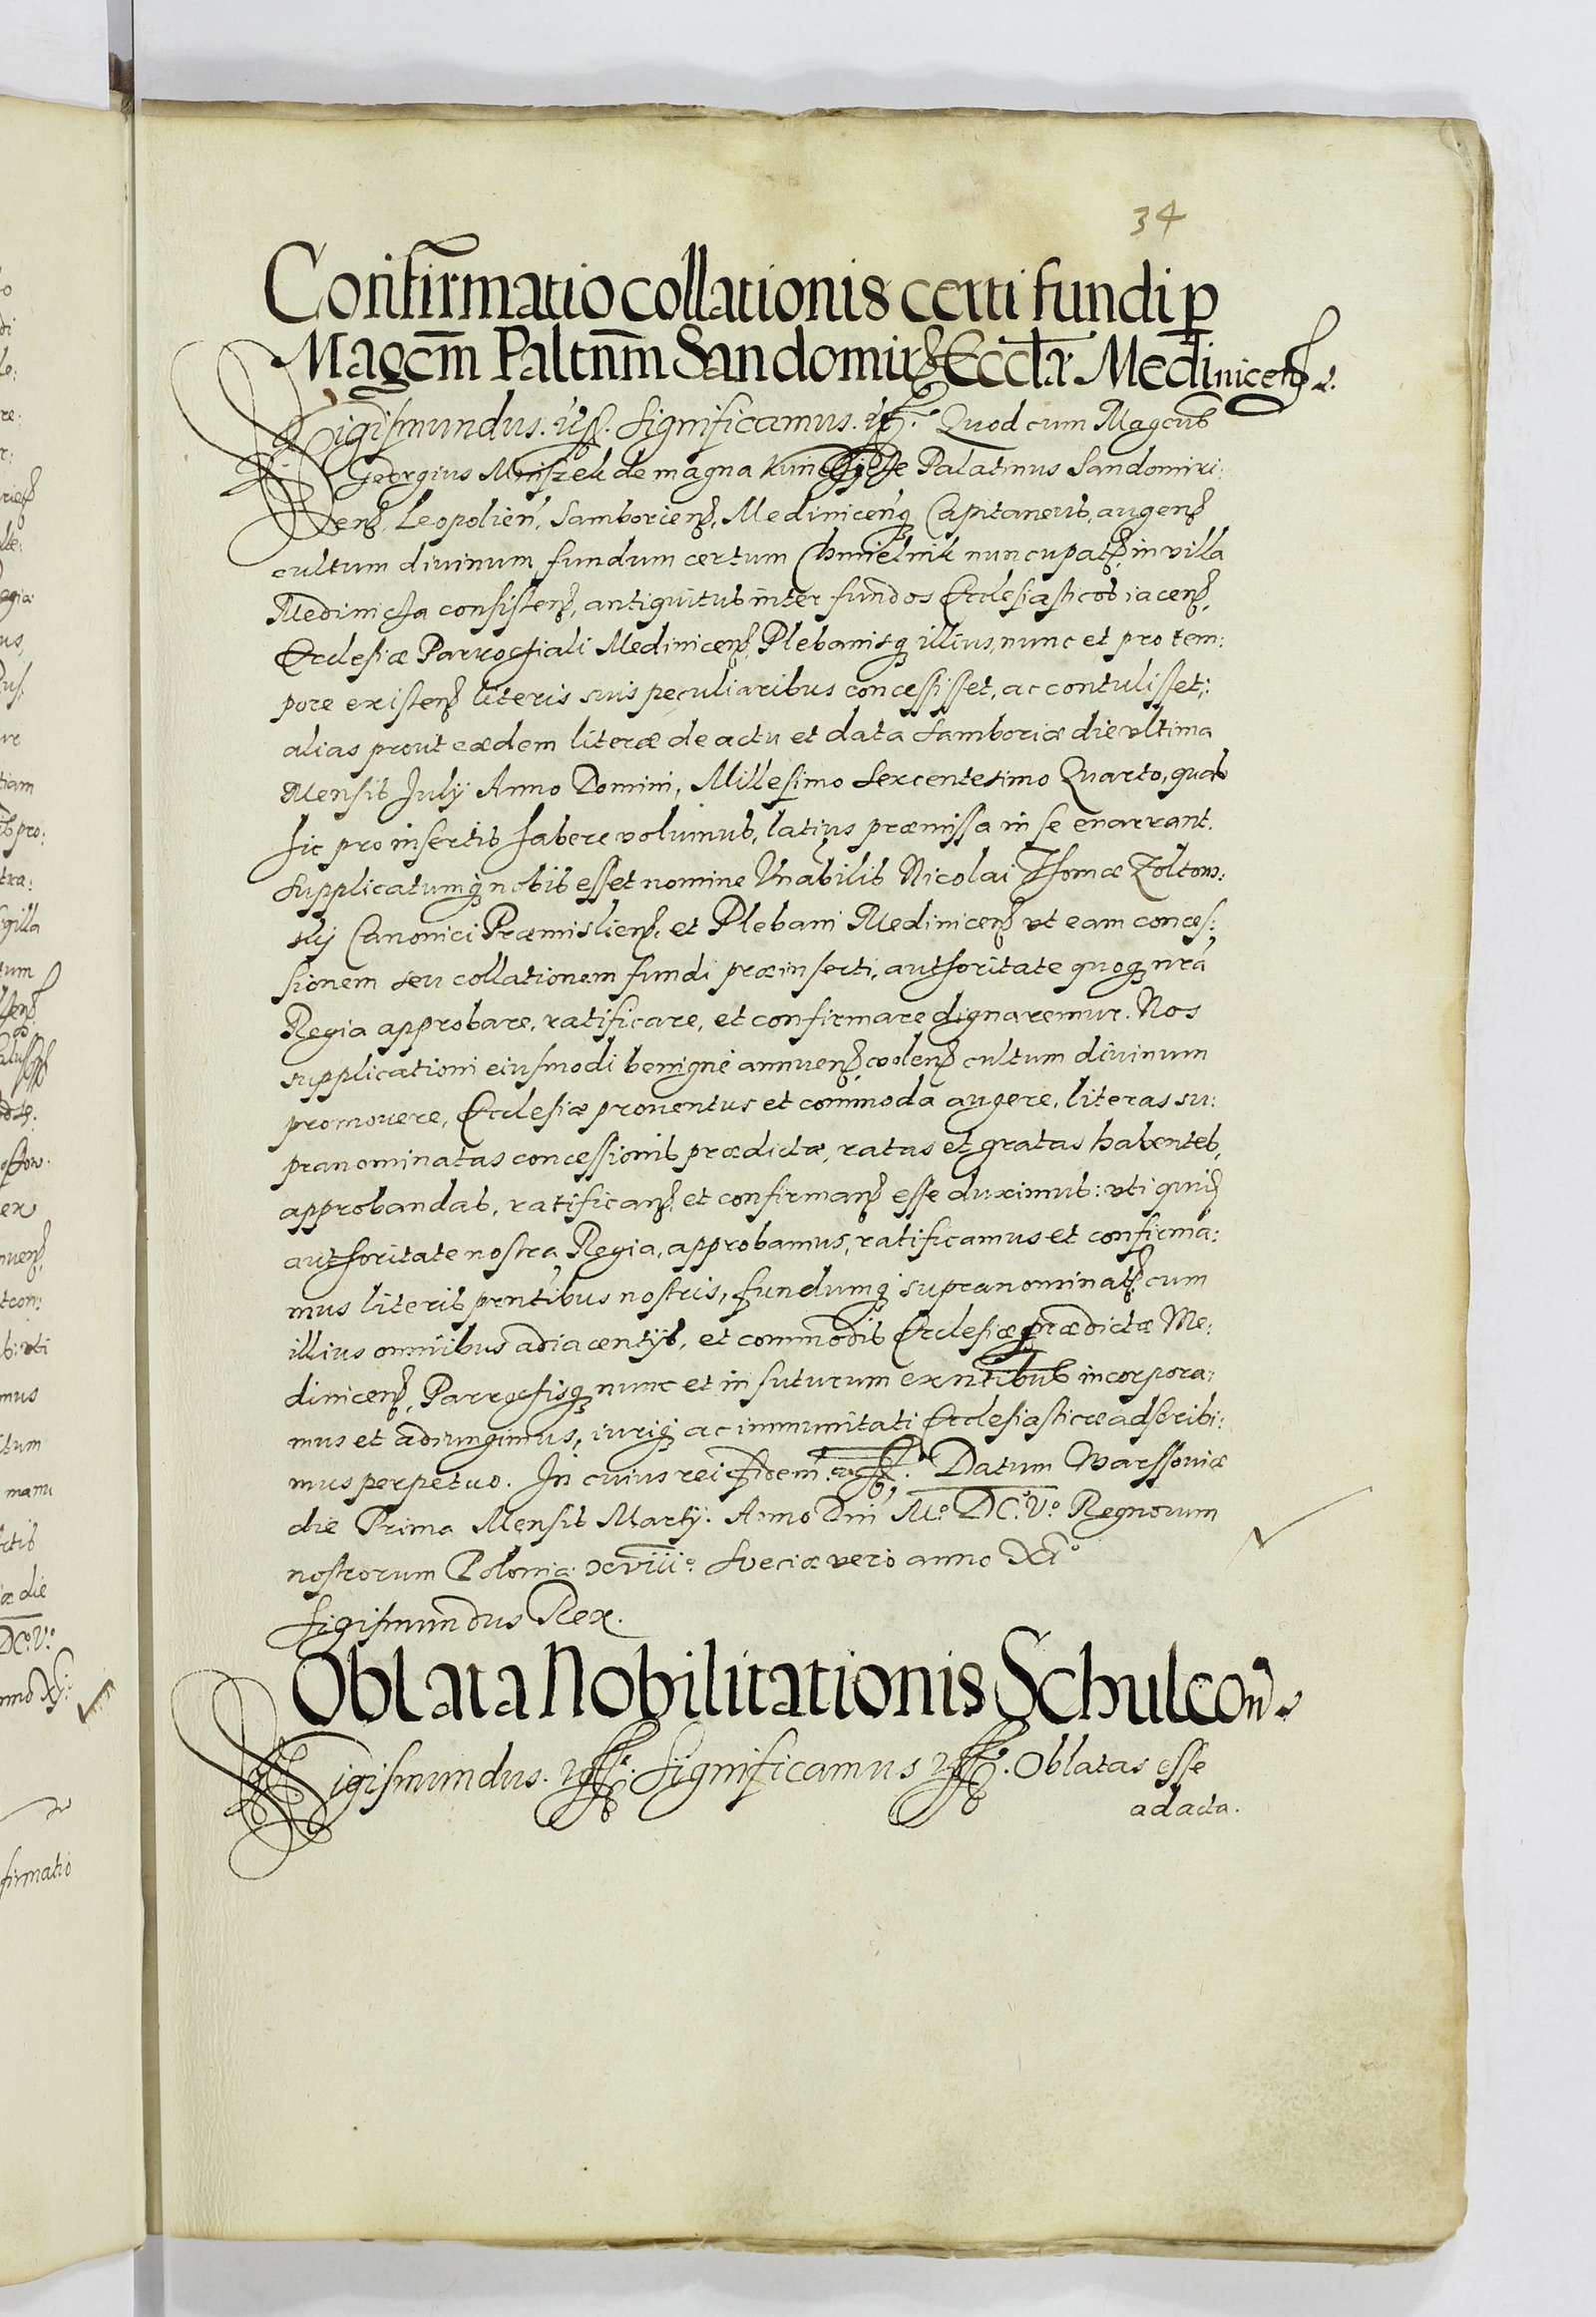 34
Confirmatio collationis certi fundi p
Magcm Paltnm Sandomir Eccłæ Medinicen.
Sigismundus. etc. Significamus. etc. Quod cum Magcus
Georgius Mniszek de magna Kunczicze Palatinus Sandomiri:
en, Leopolien, Samborien, Medinicenq Capitaneus, augen
cultum diuinum fundum certum Chmielnik nuncupat, in villa
Medinicza consisten, antiquitus inter fundos Ecclesiasticos iacen,
Ecclesiæ Parrochiali Medinicen, Plebanisq illius, nunc et pro tem:
pore existen literis suis peculiaribus concessisset, ac contulisset:
alias prout eædem literæ de actu et data Samboriæ die ultima
Mensis July Anno Domini, Millesimo Sexcentesimo Quarto, quas
hic pro insertis habere volumus, latius præmissa in se enarrant.
Supplicatumq nobis esset nomine Vnabilis Nicolai Thomæ Zoltow:
skij Canonici Præmislien, et Plebani Medinicen ut eam conces:
sionem seu collationem fundi præinserti, authoritate quoq nra
Regia approbare, ratificare, et confirmare dignaremur. Nos
supplicationi eiusmodi benigne annuen, volen cultum diuinum
promouere, Ecclesiæ prouentus et commoda augere, literas su:
pranominatas concessionis prædictæ, ratas et gratas habentes,
approbandas, ratifican, et confirman esse duximus: uti quid
authoritate nostra Regia, approbamus, ratificamus et confirma:
mus literis pntibus nostris, fundumq supranominat, cum
illius omnibus adiacentys, et commodis Ecclesiæ prædictæ Me:
dinicen, Parrochisq nunc et in futurum exntibus incorpora:
mus et adiungimus, iuriq ac immunitati Ecclesiasticæ adscribi:
mus perpetuo. In cuius rei fidem. etc. Datum Warssouiæ
die Prima Mensis Marty. Anno Dni Mo. DCo. Vo. Regnorum
nostrorum Poloniæ xviiio. Sueciæ vero anno XIo
Sigismundus Rex.
Oblata Nobilitationis Schulcow
Sigismundus. etc. Significamus etc. Oblatas esse
ad acta.